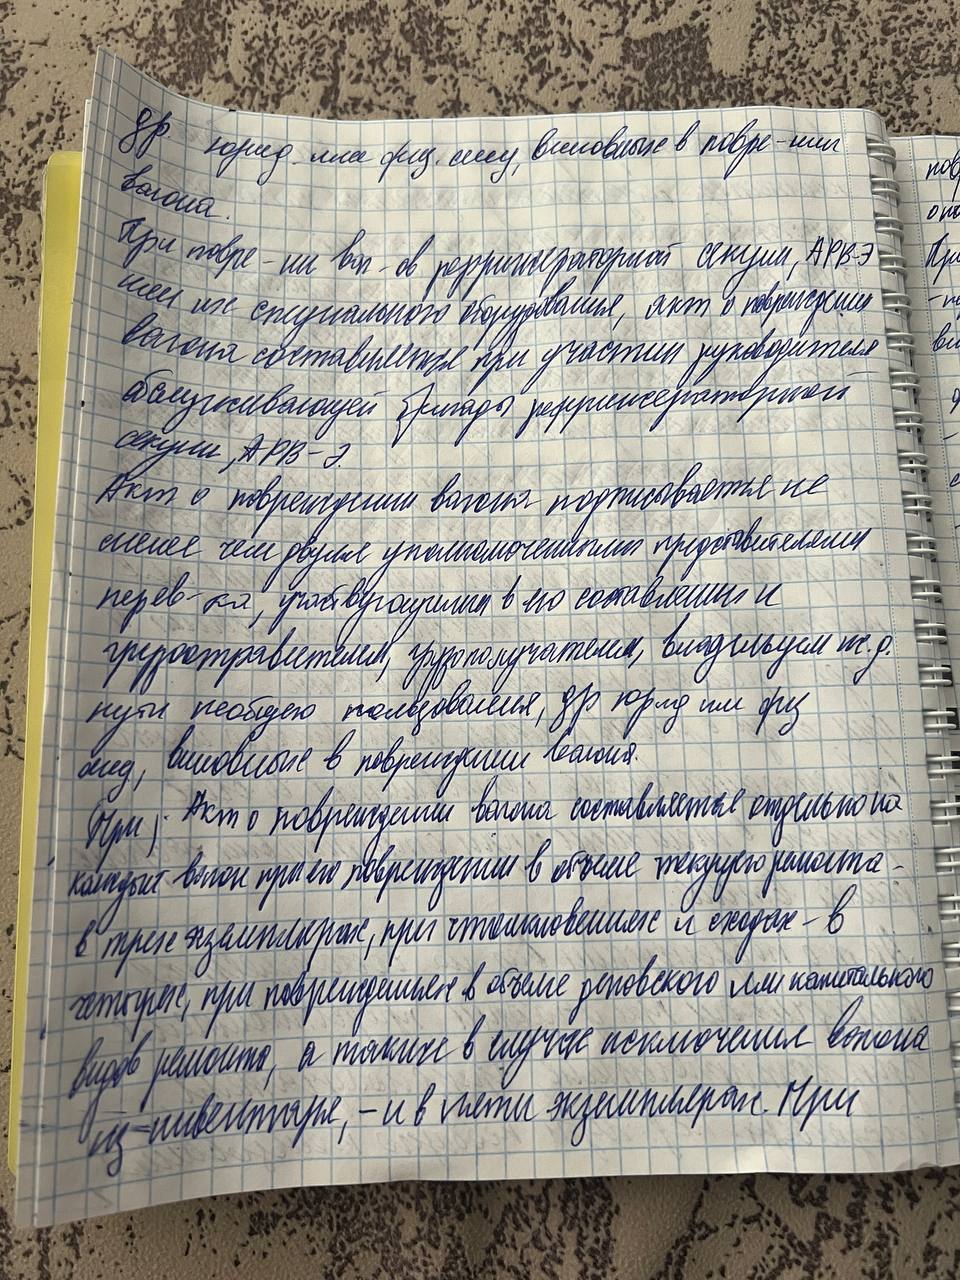 др юрид. или физ. лицу, виновные в повре-нии
вагона.
При повре-нии ваг-ов рефрижераторной секции, АРВ-Э
или их специального оборудования, акт о повреждении
вагона составляется при участии руководителя
обслуживающей бригады рефрижераторной
секции, АРВ-Э.
Акт о повреждении вагона подписывается не
менее чем двумя уполномоченными представителями
перев-ка, участвующими в его составлении и
грузоотправителем, грузополучателем, владельцем ж.д.
пути необщего пользования, др юрид или физ
лиц, виновные в повреждении вагона.
При; Акт о повреждении вагона составляется отдельно на
каждый вагон при его повреждении в объеме текущего ремонта -
в трех экземплярах, при столкновениях и сходах - в
четырех, при повреждениях в объеме деповского или капитального
видов ремонта, а также в случае исключения вагона
из инвентаря, - и в пяти экземплярах. При
пов
При